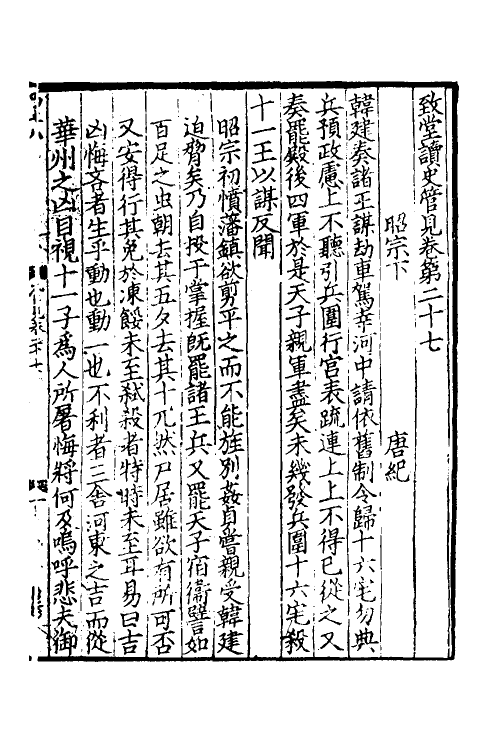 致堂讀史管見卷第二十七
昭宗下 唐紀
韓建奏諸王謀劫車駕幸河中請依舊制令歸十六宅勿典
兵預政慮上不聽引兵圍行宮表䟽連上上不得已從之又
奏罷殿後四軍於是天子親軍盡矣未幾發兵圍十六宅殺
十一王以謀反聞
昭宗初憤藩鎮欲剪平之而不能旌別姦良嘗親受韓建
迫脅矣乃自投于掌握既罷諸王兵又罷天子宿衞譬如
百足之虫朝去其五夕去其十兀然尸居雖欲有所可否
又安得行其免於凍餒未至弒殺者特時未至耳易曰吉
凶悔吝者生乎動也動一也不利者三舍河東之吉而從
華州之凶目視十一子為人所屠悔將何及嗚呼悲夫御